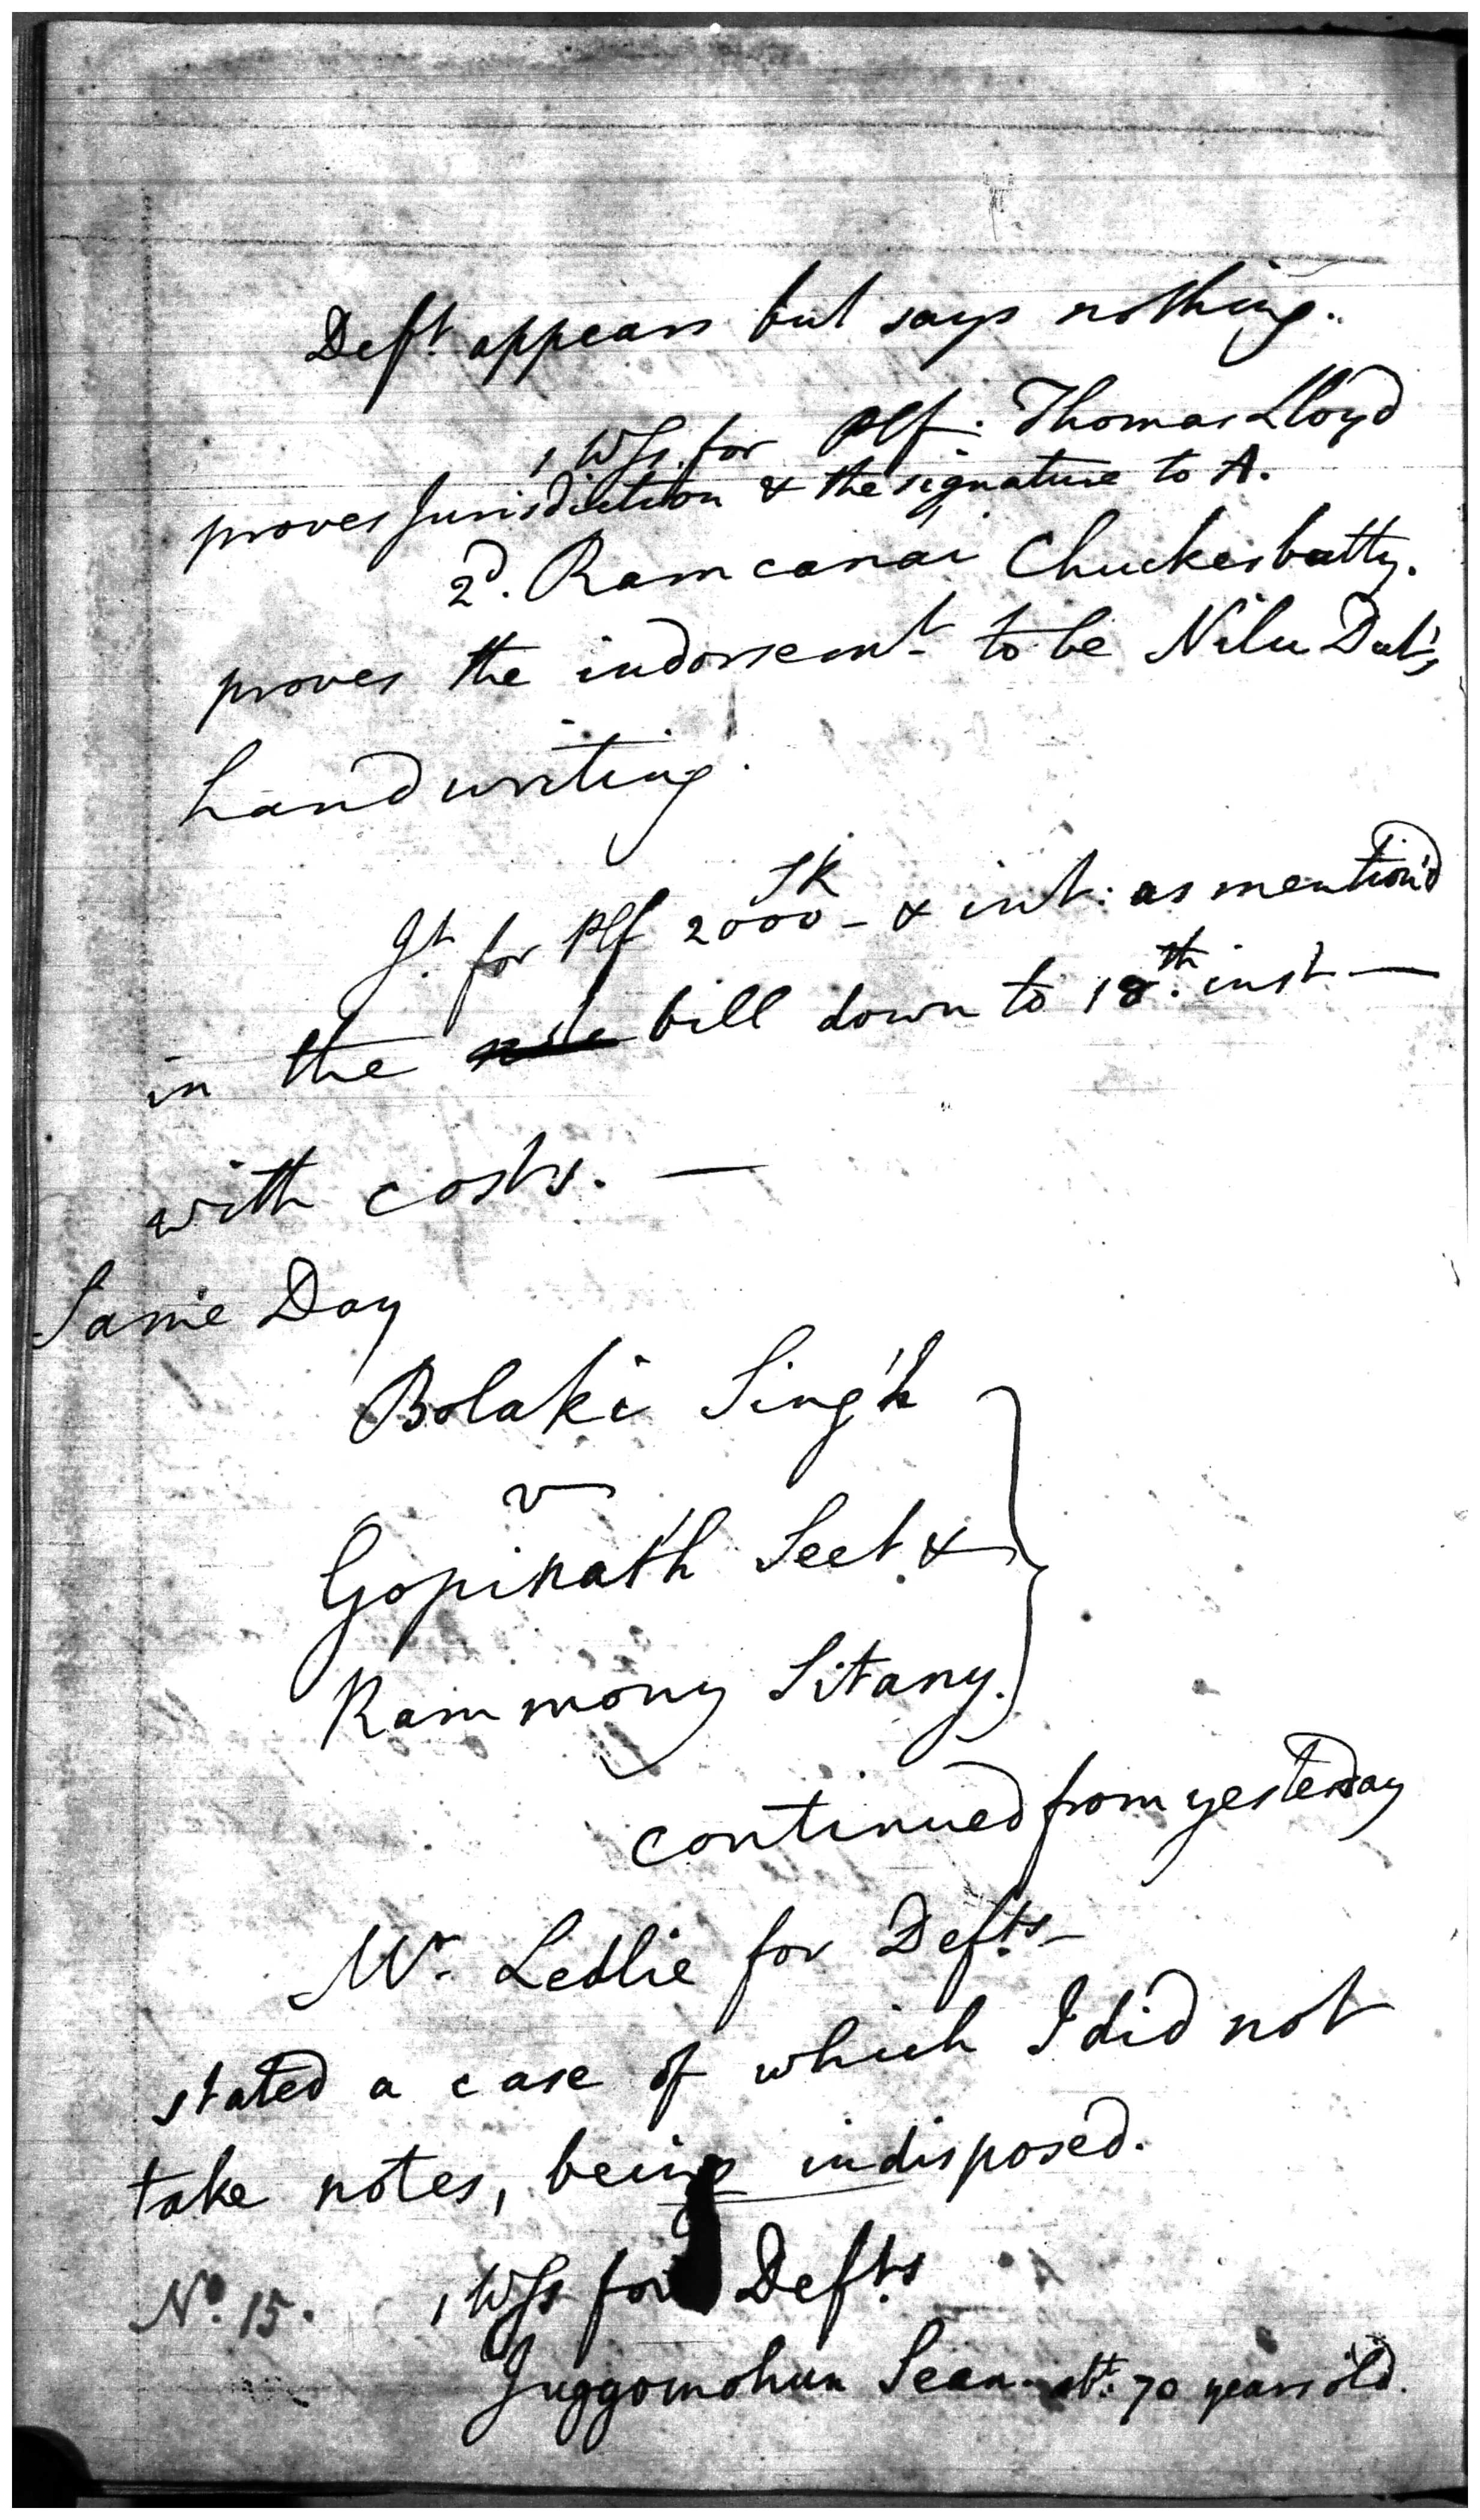 Deft. appears but says nothing.
1 Wss. for Plf: Thomas Lloyd
proves Jurisdiction & the signature to A.
2d. Ramcanai Chuckerbutty.
proves the indorsemt. to be Nilu Dut's
handwriting.
Jt. for Plf SR 2000 - & int: as mention'd
in the bill down to 18th. inst —
with costs. —
Same Day
Bolaki Singh
v
Gopinath Seet &
Rammony Sitany.
continued from yesterday
Mr. Ledlie for Defts. -
stated a case of which I did not
take notes, being indisposed.
No. 15. 1 Wss for Defts
Juggomohun Seen. abt: 70 years old.